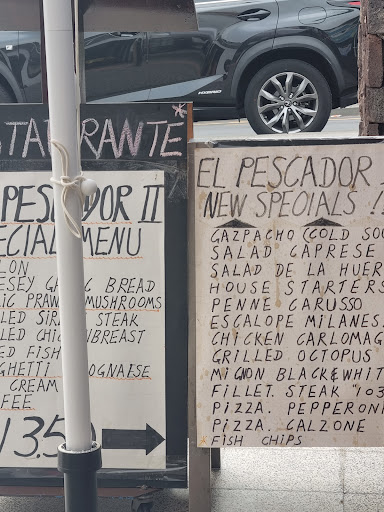 HYBRID
STAURANTE
PESCADOR II
ECIAL MENU
LON
ESEY GARLIC BREAD
LIC PRAWN MUSHROOMS
LED SIRLOIN STEAK
LED CHICKEN BREAST
ED FISH
GHETTI BOLOGNAISE
CREAM
FEE
13.50
EL PESCADOR
NEW SPECIALS !
GAZPACHO (COLD SO
SALAD CAPRESE
SALAD DE LA HUER
HOUSE STARTERS
PENNE CARUSSO
ESCALOPE MILANES
CHICKEN CARLOMAG
GRILLED OCTOPUS
MIGNON BLACK & WHIT
FILLET. STEAK "103
PIZZA. PEPPERONI
PIZZA. CALZONE
FISH CHIPS